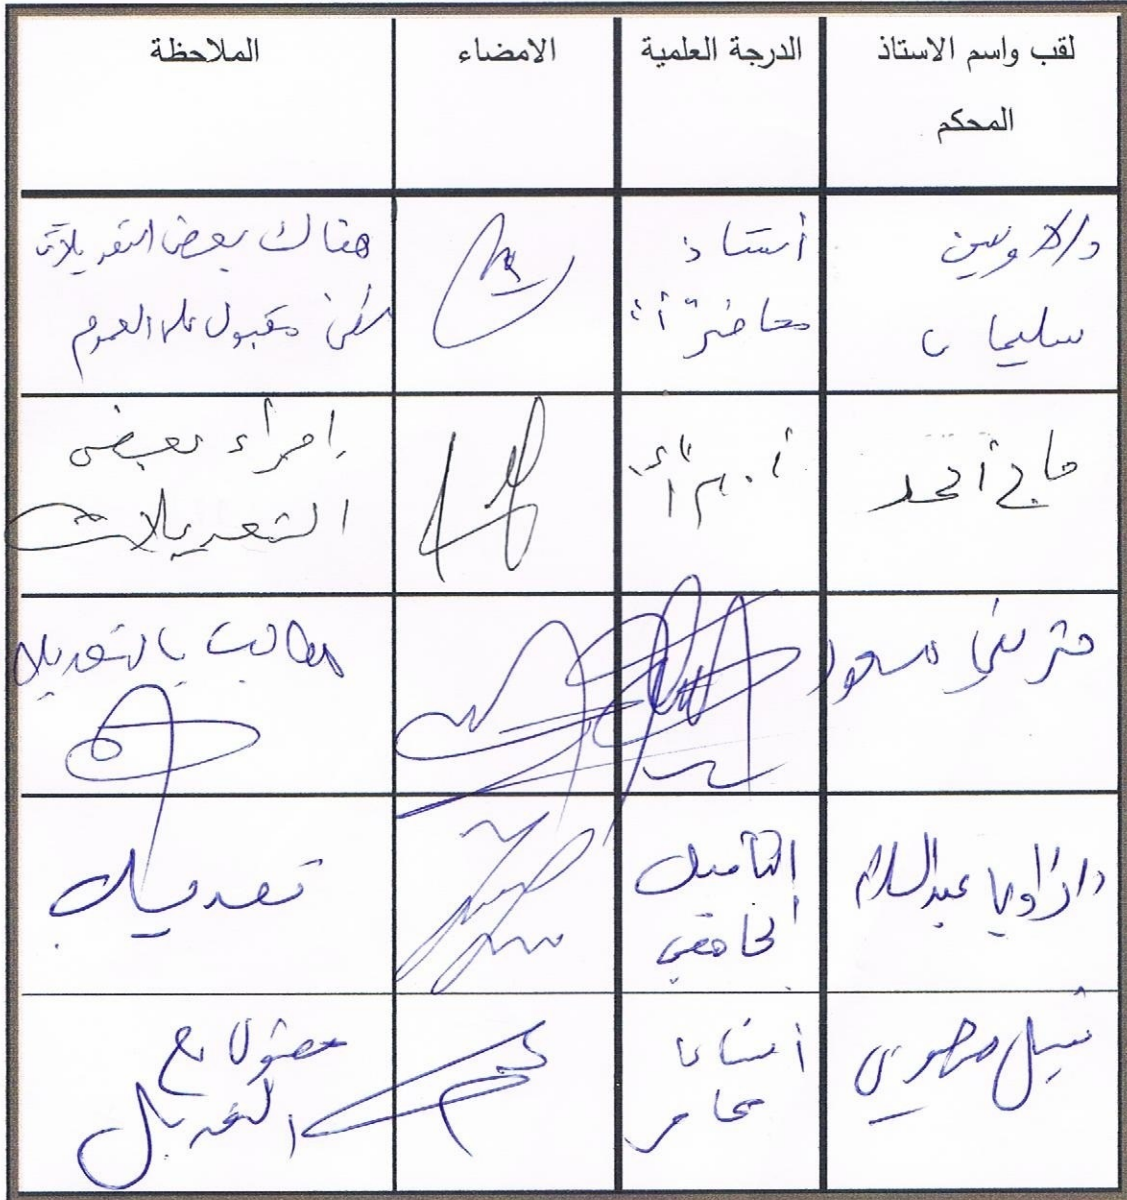 لقب واسم الاستاذ
المحكم
الدرجة العلمية
الامضاء
الملاحظة
سليمان
أستاذ
محاضر "أ"
هناك بعض التعديلات
لكن مقبول على العموم
حاج أحمد
إجراء بعض
التعديلات
مسعود
مطالب بالتعديلا
عبد السلام
التأهيل
الجامعي
تعديل
نبيل
أستاذ
محاضر
مقبول مع
التعديل